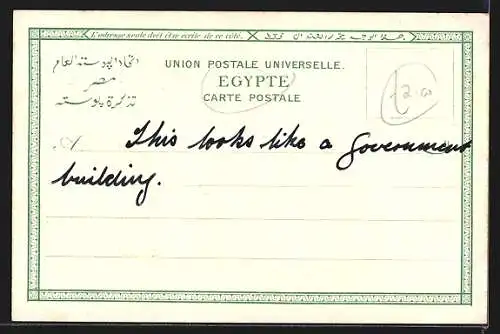 L'adresse seule doit être écrite de ce côté.
اتحاد البوسته العام
مصر
تذكرة بوسته
UNION POSTALE UNIVERSELLE.
EGYPTE
CARTE POSTALE
A
This looks like a government
building.